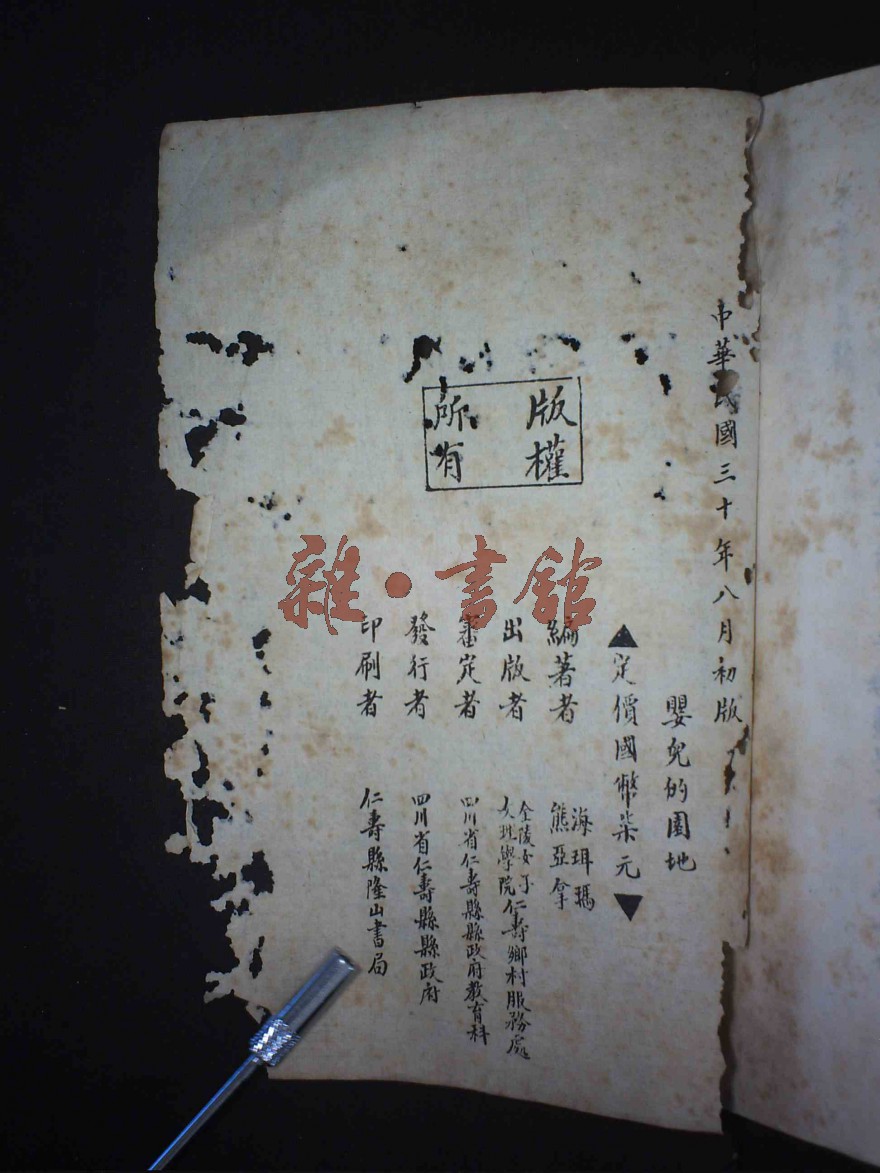 中華民國三十年八月初版
嬰兒的園地
▲定價國幣柒元▼
編著者 海珥瑪 熊亞拿
出版者 金陵女子文理學院仁壽鄉村服務處
審定者 四川省仁壽縣縣政府教育科
發行者 四川省仁壽縣縣政府
印刷者 仁壽縣隆山書局
版權
所有
雜·書館